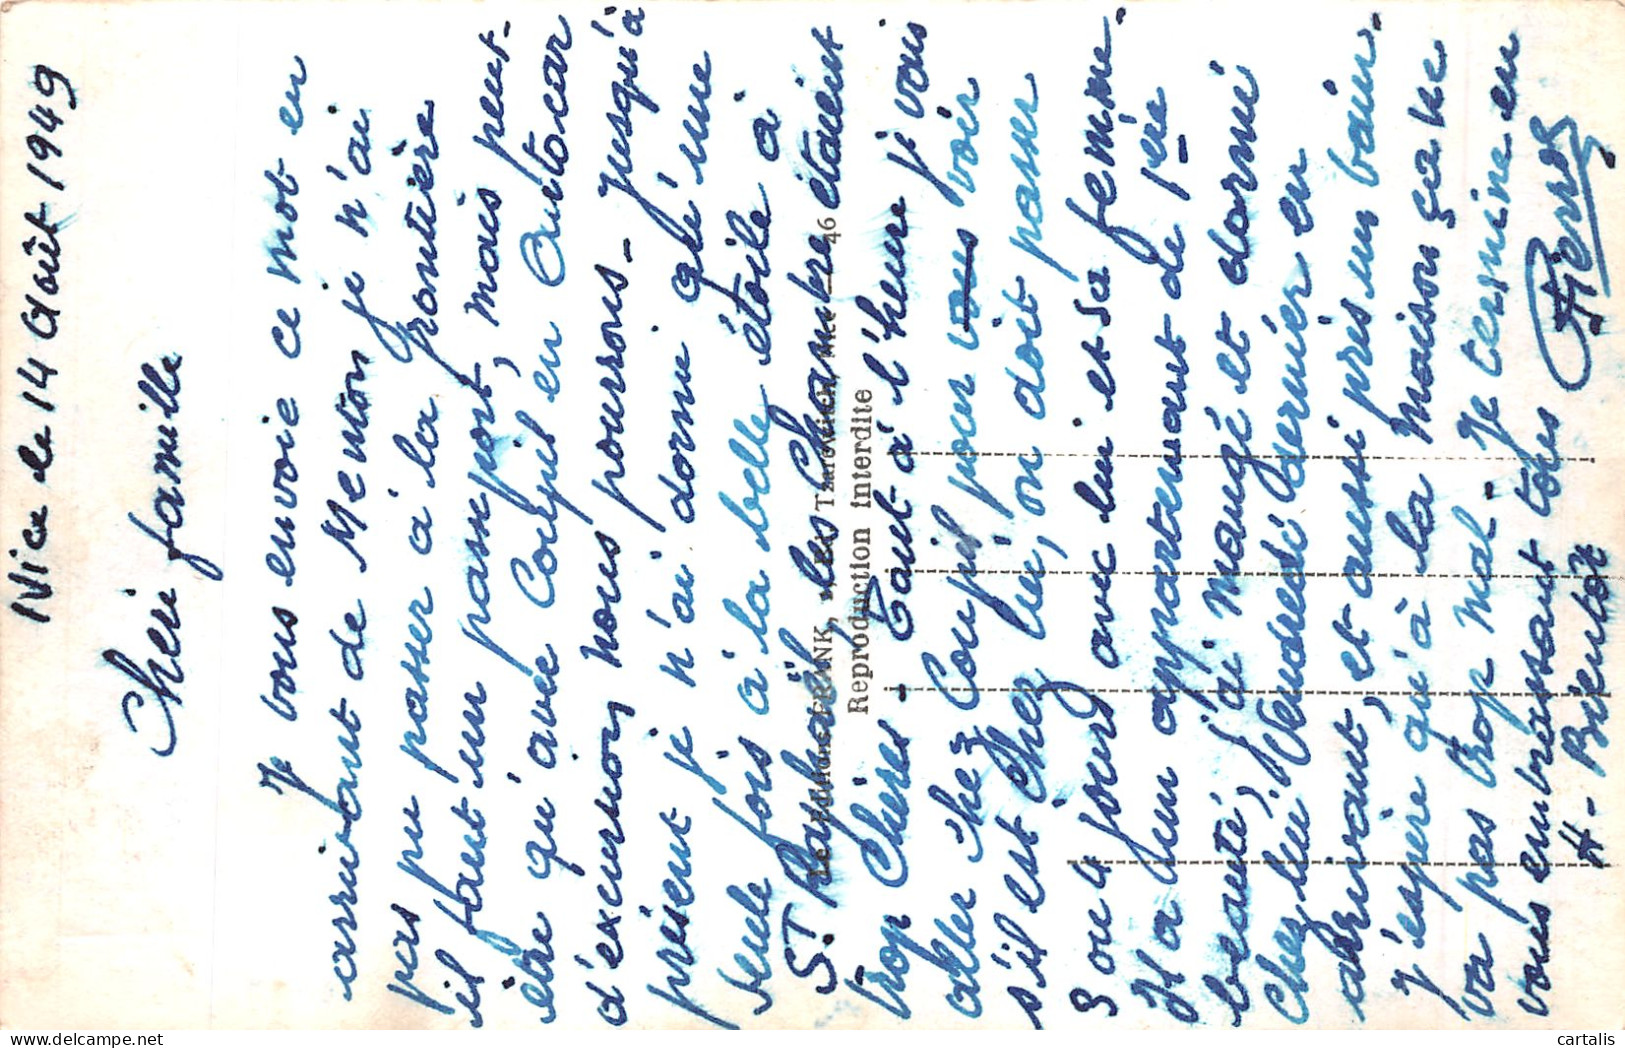 Nice le 14 Août 1949
Chéri famille
Je vous envoie ce mot en
arrivant de Menton je n'ai
pas pu passer à la frontière
il faut un passeport, mais peut-
être qu'avec Coupil en Autocar
d'excursion nous pourrons - jusqu'à
présent je n'ai dormi qu'une
seule fois à la belle étoile à
St. Raphaël, les Chambre étaient
trop Chères - Tout à l'heure je vais
aller chez Coupil pour vous voir
s'il est chez lui, on doit passer
3 ou 4 jours avec lui et sa femme.
Il a un appartement de 1ère
beauté, j'ai mangé et dormi
chez lui Vendredi dernier en
arrivant, et aussi pris un bain.
j'espère qu'à la maison ça ne
va pas trop mal - Je termine en
vous embrassant tous
A - Bientôt
Editions FRANK, 46
Reproduction interdite
cartalis